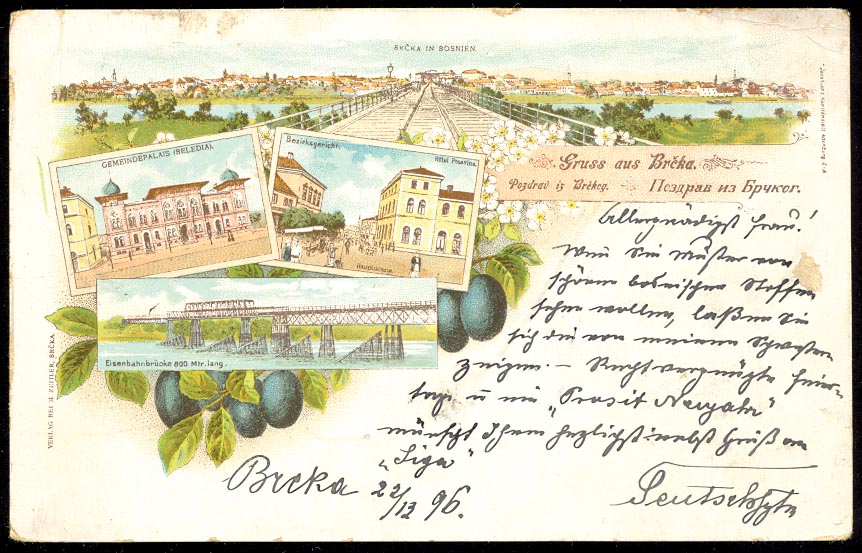 BRČKA IN BOSNIEN.
GEMEINDEPALAIS (BELEDIA).
Bezirksgericht.
Hôtel Posavina.
Hauptstrasse.
Gruss aus Brčka.
Pozdrav iz Brčkog. Поздрав из Брчког.
Eisenbahnbrücke 800 Mtr. lang.
VERLAG BEI M. ZEITLER, BRČKA
Allergnädigst Frau!
Wen Sie Muster von
schönen bosnischen Stoffen
sehen wollen, laßen Sie
sich die von meinen Schwestern
zeigen. – Recht vergnügte Feier-
tage u ein „Prosit Neujahr"
wünscht Ihnen herzlichst nebst Gruß an
„Liga"
Brcka 22/12 96.